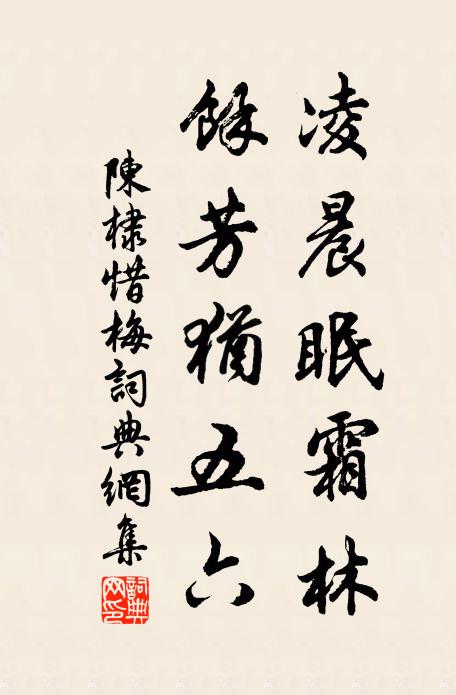 凌晨眠霜林
餘芳猶五六
陳棣惜梅詞典網集
詞典網印